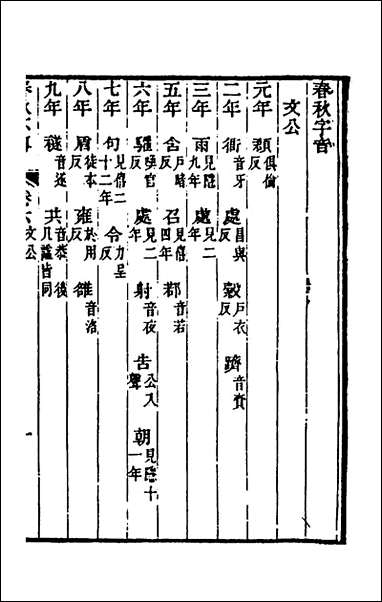 春秋字音
文公
元年 頵 俱倫反
二年 衙 音牙 處 昌與反 縠 戶衣反 躋 音賷
三年 雨 見隱九年 處 見二
五年 含 戶暗反 召 見僖四年 鄀 音若
六年 驩 喚官反 處 見二 射 音夜 告 公入聲 朝 見隱十一年
七年 句 見僖二十二年 令 力呈反
八年 盾 徒本反 雍 於用反 雒 音洛
九年 襚 音遂 共 音恭後凡諡皆同
卷六 文公 一